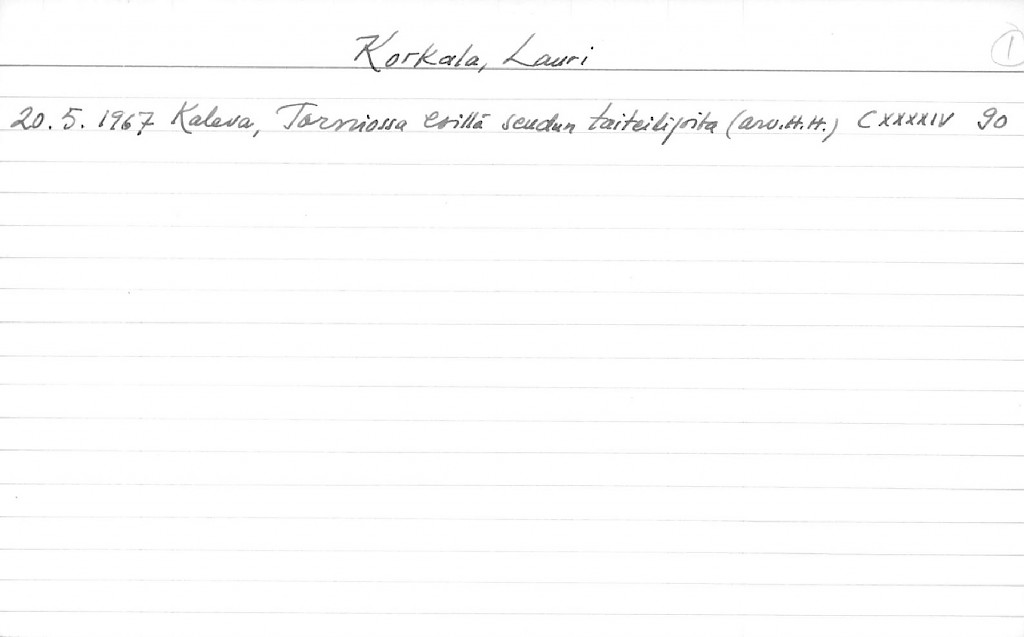 Korkala, Lauri
1
20.5.1967 Kaleva, Torniossa esillä seudun taiteilijoita (arv.H.H.) CXXXXIV 90